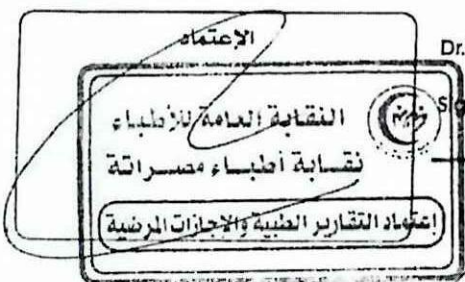 الإعتماد
Dr.
النقابة العامة للأطباء
نقابة أطباء مصراتة
إعتماد التقارير الطبية والإجازات المرضية